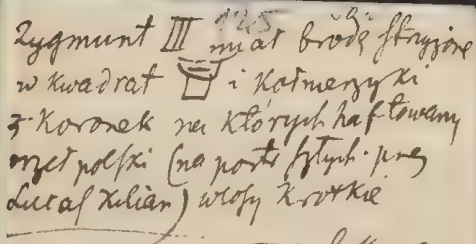 125
Zygmunt III miał brodę strzyżone
w kwadrat i kołnierzyki
z koronek na których haftowany
orzeł polski (na portr sztych. prez
Lucas Kilian) włosy krótkie